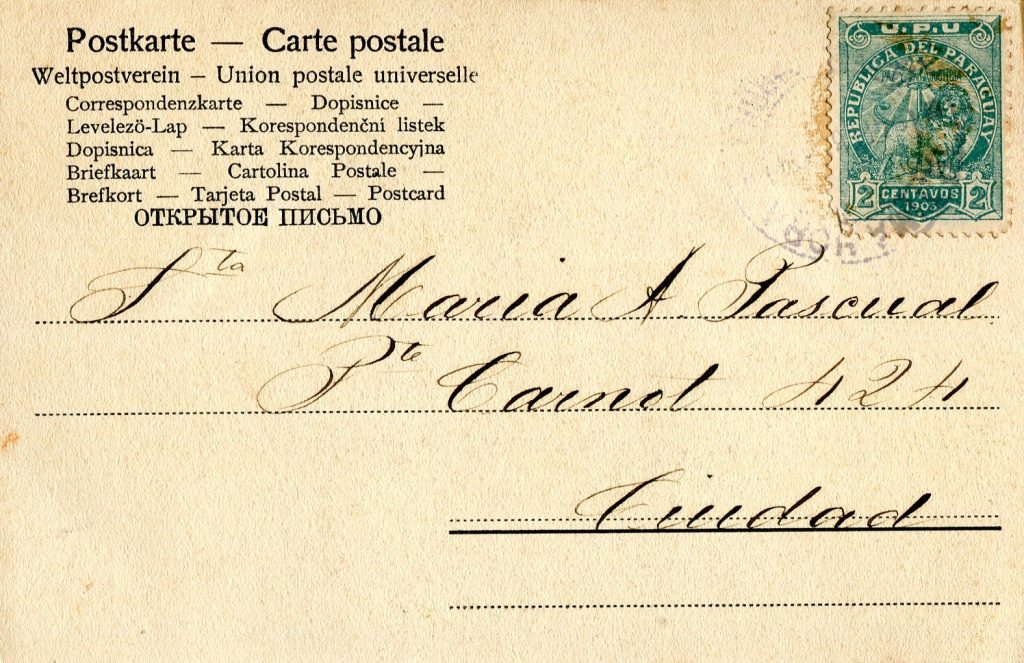 Postkarte — Carte postale
Weltpostverein – Union postale universelle
Correspondenzkarte — Dopisnice —
Levelező-Lap — Korespondenční listek
Dopisnica — Karta Korespondencyjna
Briefkaart — Cartolina Postale —
Brefkort — Tarjeta Postal — Postcard
ОТКРЫТОЕ ПИСЬМО
U.P.U
REPUBLICA DEL PARAGUAY
2 CENTAVOS 2
1903
Sta Maria A. Pascual
Pte Carnot 424
Ciudad